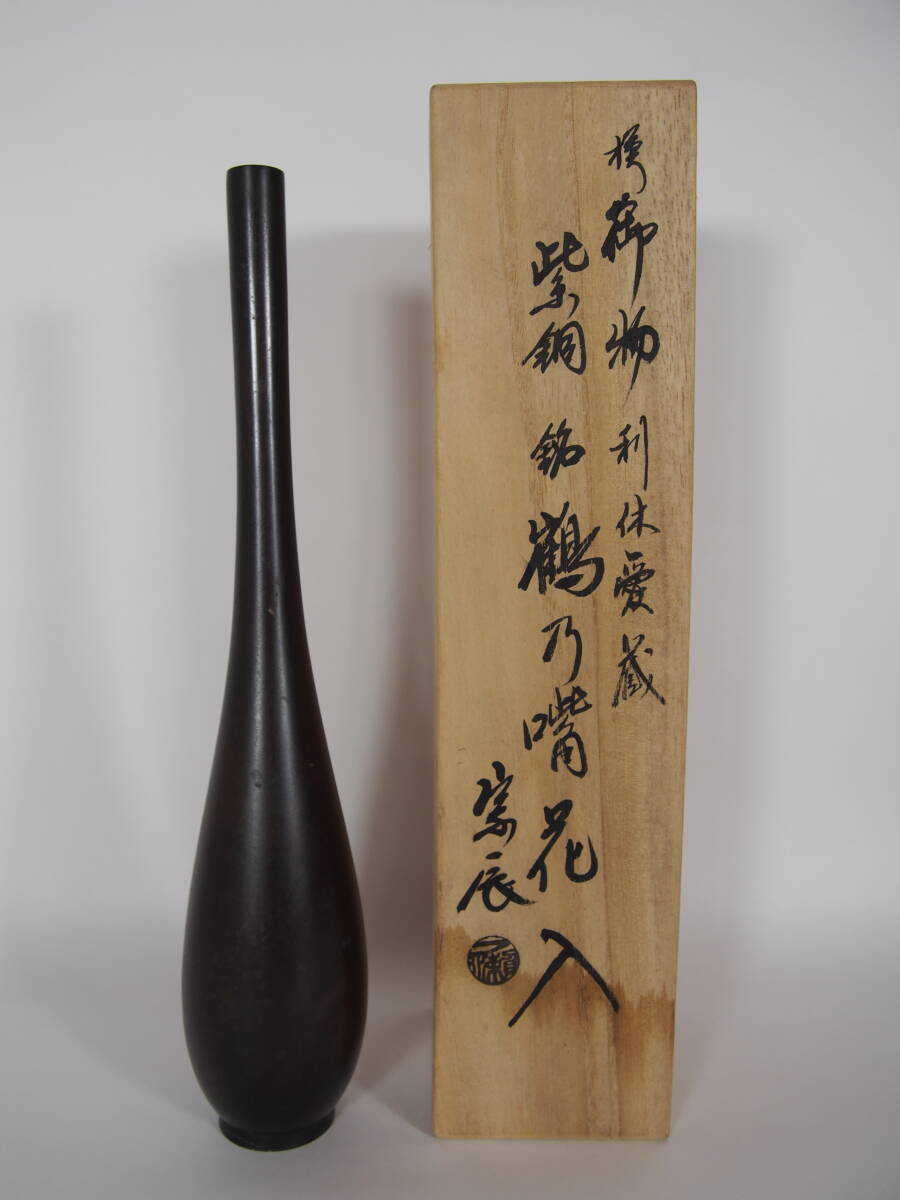 模御物利休愛蔵
紫銅銘鶴乃嘴花入
宗辰